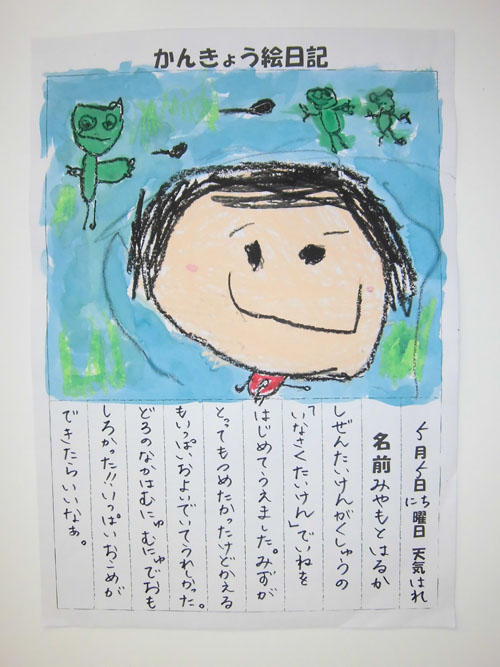 かんきょう絵日記
5月5日 にち曜日 天気 はれ
名前 みやもと はるか
しぜんたいけんがくしゅうの
「いなさくたいけん」でいねを
はじめてうえました。みずが
とってもつめたかったけどかえる
もいっぱいおよいでいてうれしかった。
どろのなかはむにゅむにゅでおも
しろかった!!いっぱいおこめが
できたらいいなぁ。